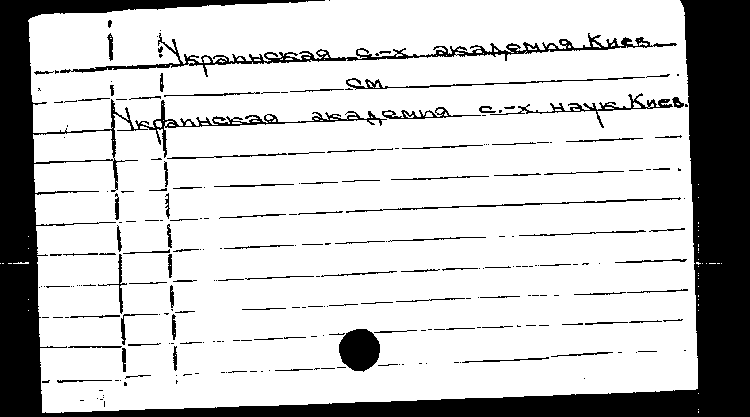 Украинская с.-х. академия. Киев.
см.
Украинская академия с.-х. наук. Киев.